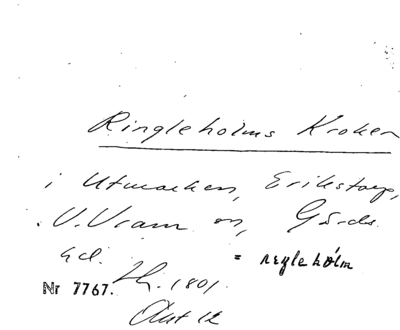 Ringleholms Kroken
i Utmarken, Erikstorp,
V. Vram sn, Gärds
hd. = regleholm
Nr 7767. Lh. 1801.
Akt 12